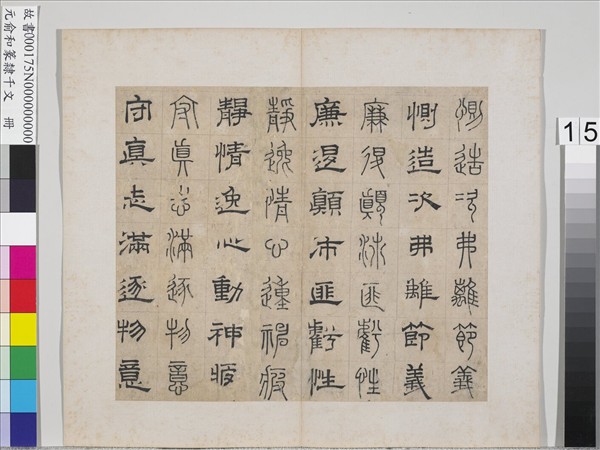 惻造次弗離節義
惻造次弗離節義
廉退顛沛匪虧性
廉退顛沛匪虧性
靜逸情心動神疲
靜情逸心動神疲
守真志滿逐物意
守真志滿逐物意
故書000175N000000000
元俞和篆隸千文 冊
15